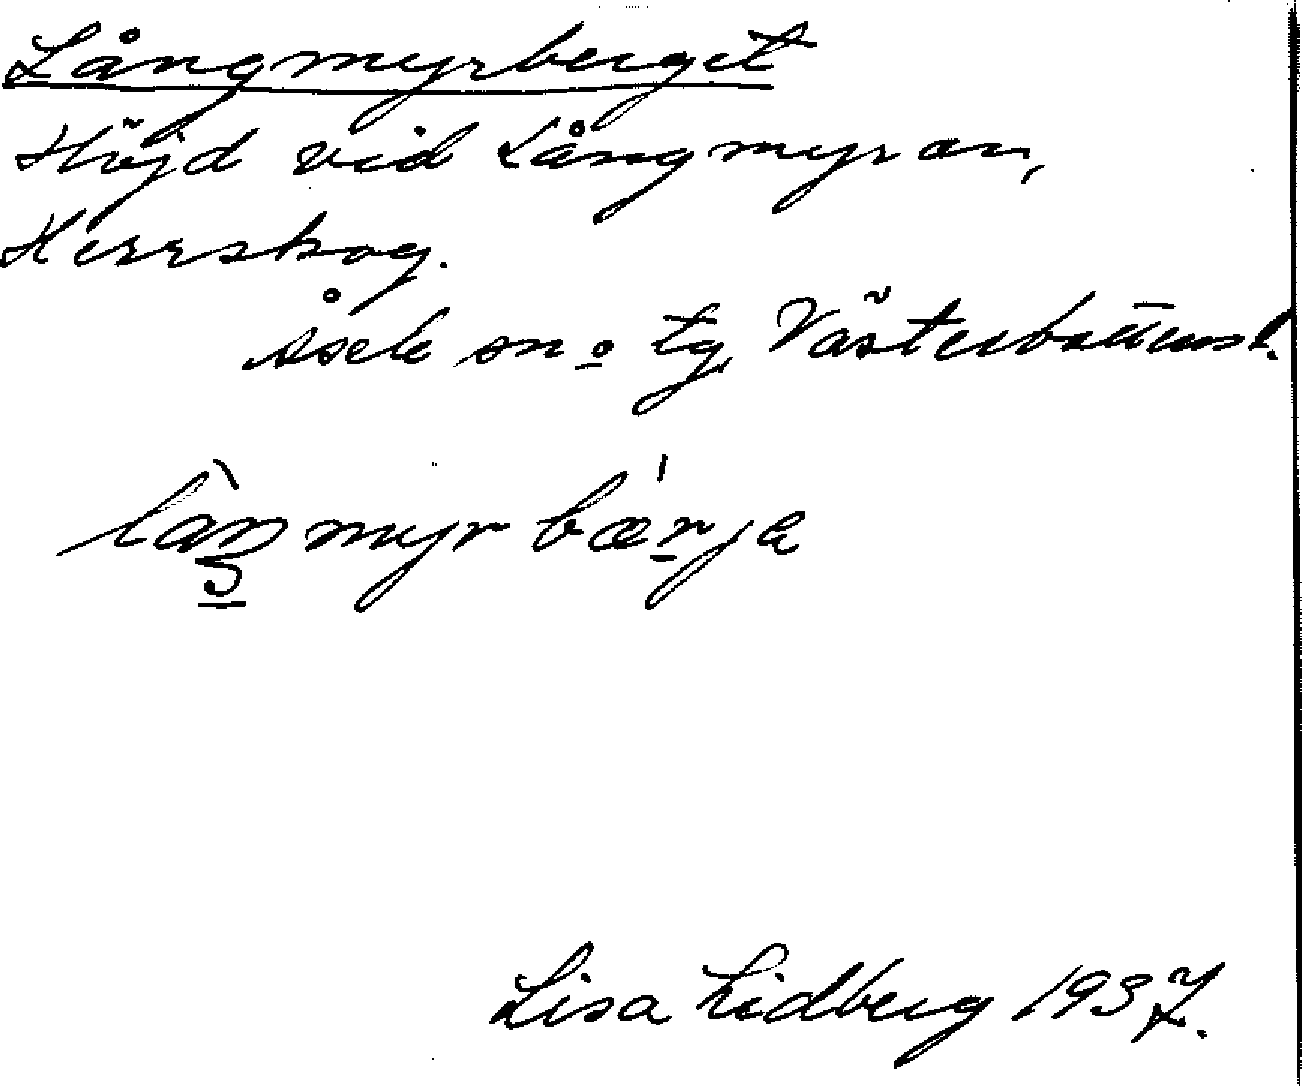 Långmyrberget
Höjd vid Långmyran,
Herrskog.
Åsele sn o tg, Västerbottens l.
bærja
Lisa Lidberg 1937.